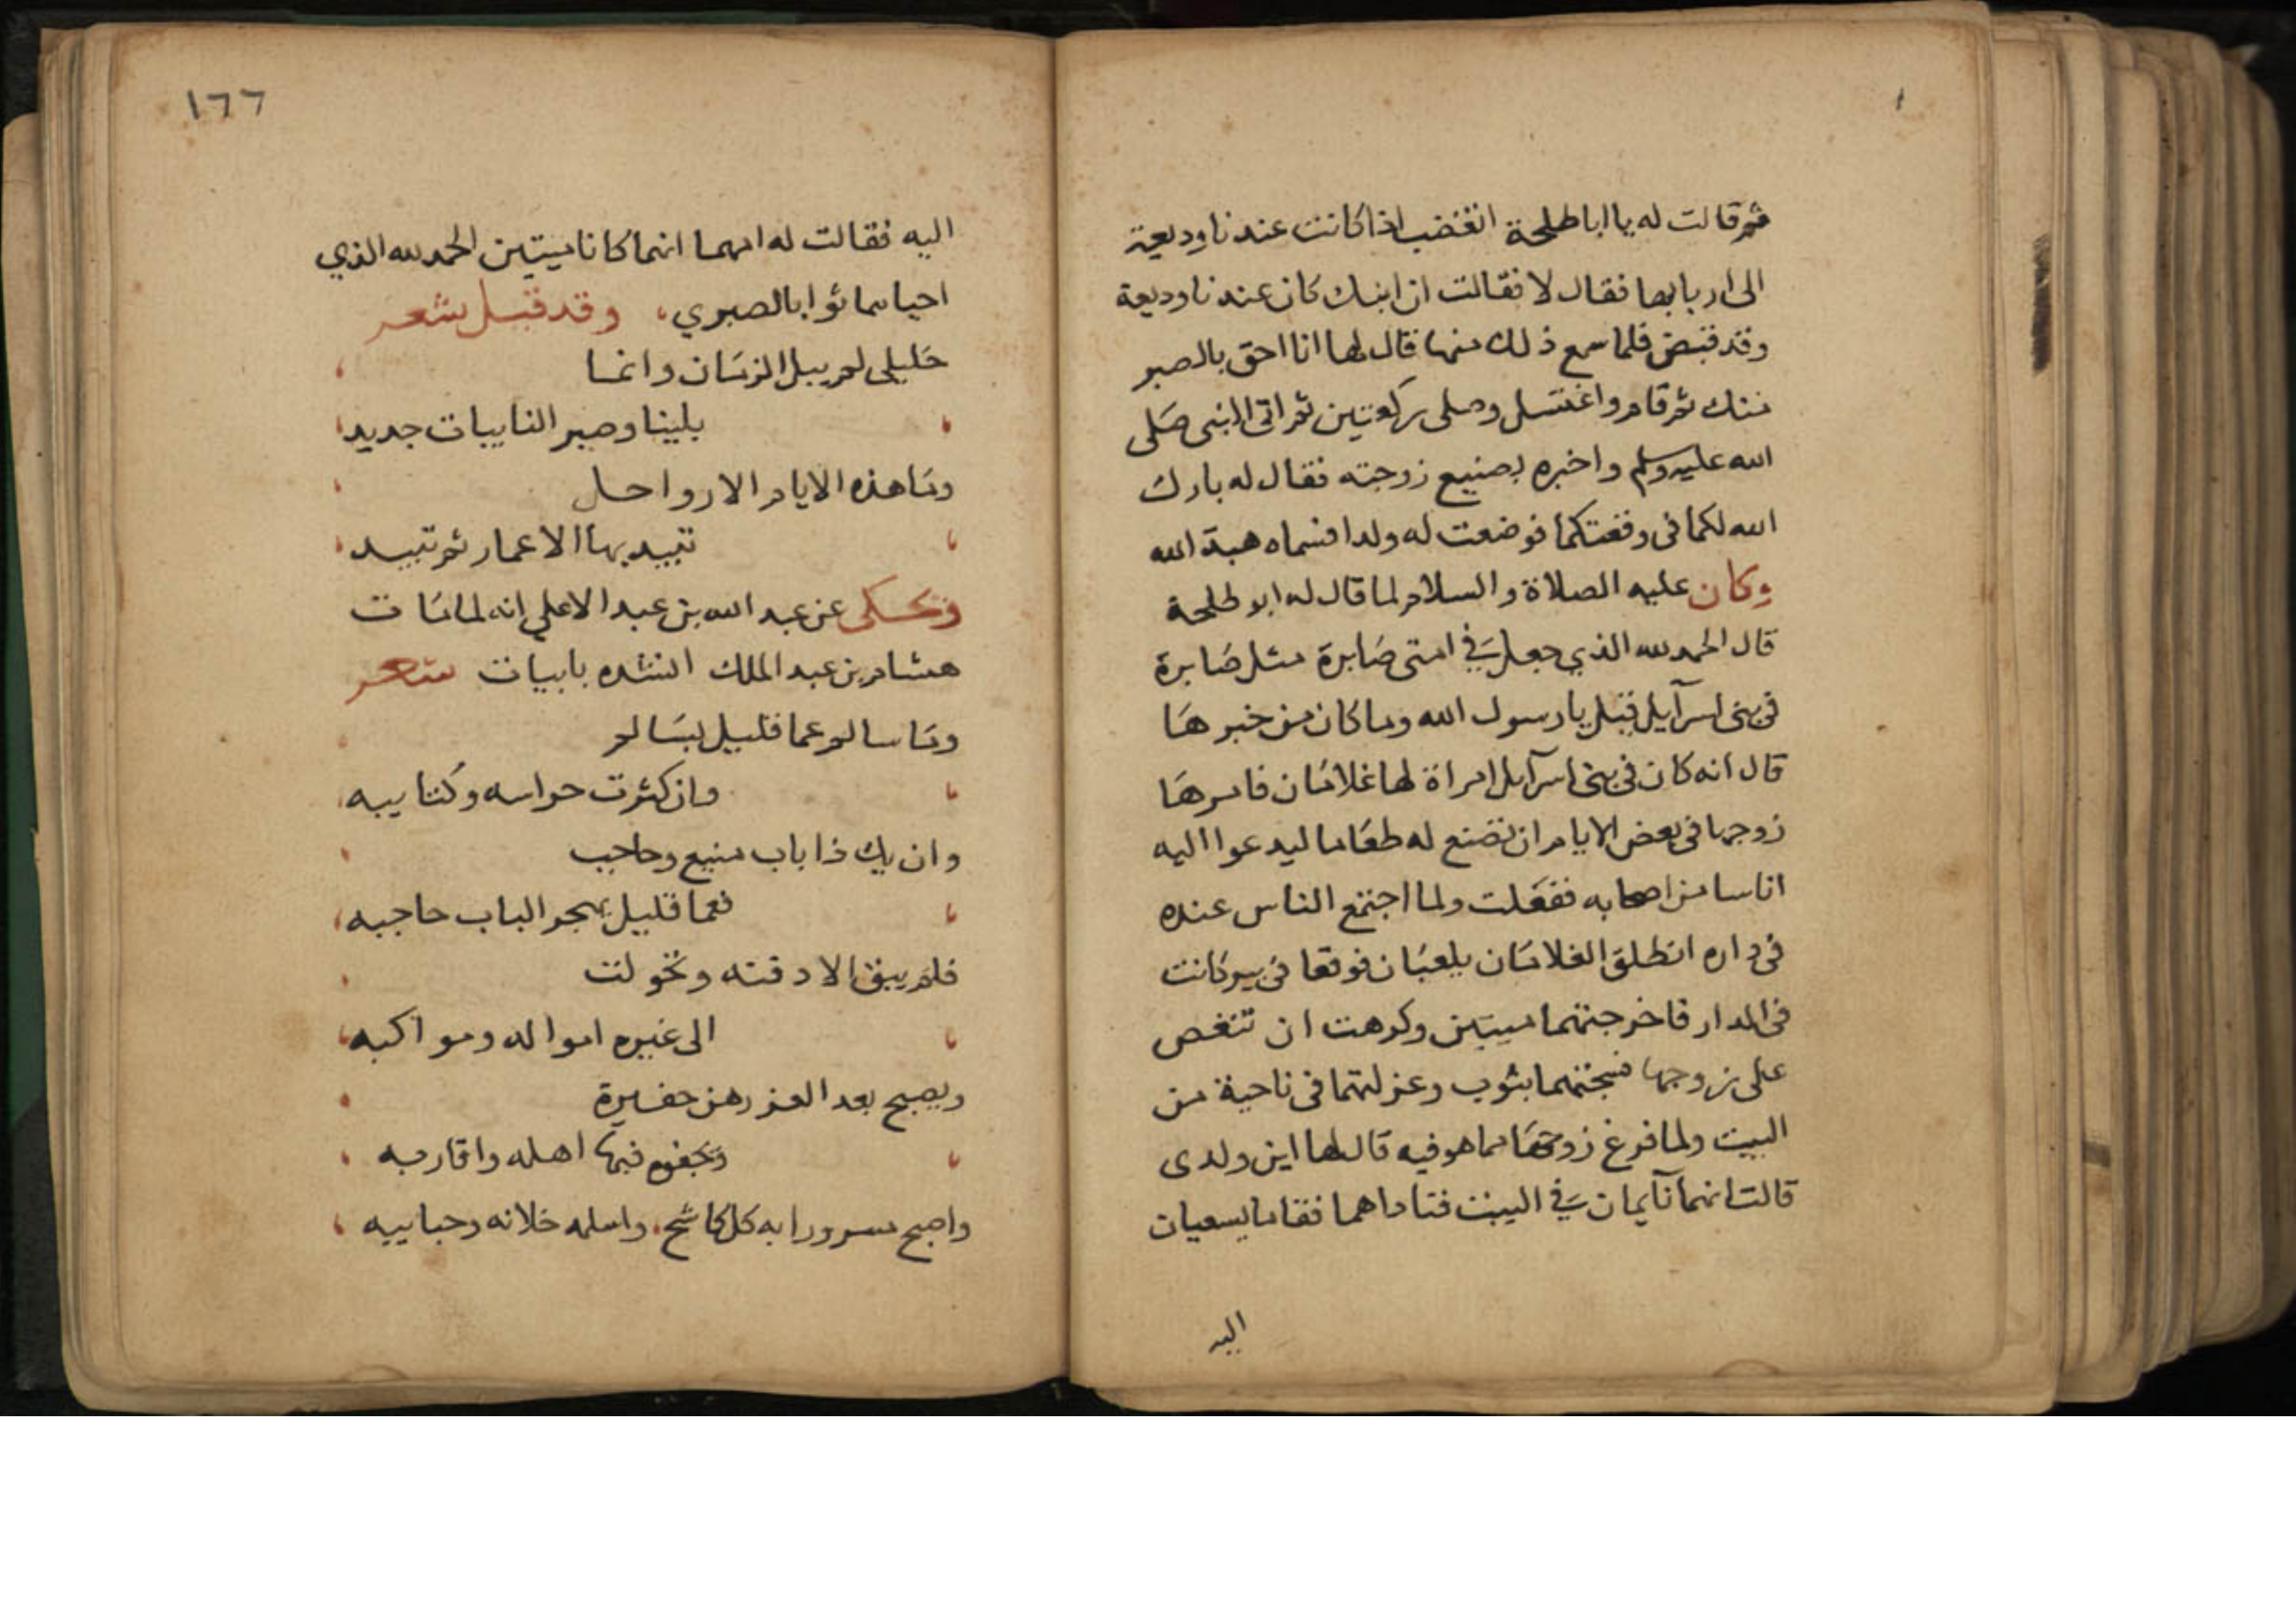 ثم قالت له يا ابا طلحة اتغضب اذا كانت عندنا وديعة
الى اربابها فقال لا فقالت ان ابنك كان عندنا وديعة
وقد قبض فلما سمع ذلك منها قال لها انا احق بالصبر
منك ثم قام واغتسل وصلى ركعتين ثم اتى النبى صلى
الله عليه وسلم واخبره بصنيع زوجته فقال له بارك
الله لكما فى وقعتكما فوضعت له ولدا فسماه هبة الله
وكان عليه الصلاة والسلام لما قال له ابو طلحة
قال الحمد لله الذي جعل في امتى صابرة مثل صابرة
فى بنى اسرآيل قيل يا رسول الله وما كان من خبرها
قال انه كان فى بنى اسرآيل امراة لها غلامان فامرها
زوجها فى بعض الايام ان تصنع له طعاما ليدعوا اليه
اناسا من اصحابه ففعلت ولما اجتمع الناس عنده
فى داره انطلق الغلامان يلعبان فوقعا فى بير كانت
فى الدار فاخرجتهما ميتين وكرهت ان تنغص
على زوجها فسجتهما بثوب وعزلتهما فى ناحية من
البيت ولما فرغ زوجها مما هو فيه قال لها اين ولدى
قالت انهما نآيمان في البيت فناداهما فقاما يسعيان
اليه
١٦٦
اليه فقالت له امهما انهما كانا ميتين الحمد لله الذي
احياهما ثوابا لصبري، وقد قيل شعر
خليلى لم يبل الزمان وانما
بلينا وصبر النايبات جديد
وما هذه الايام الا رواحل
تبيد بها الاعمار ثم تبيد
وحكى عن عبد الله بن عبد الاعلي انه لما مات
هشام بن عبد الملك انشده بابيات شعر
وما سالم عما قليل بسالم
وان كثرت حراسه وكتايبه
وان يك ذا باب منيع وحاجب
فعما قليل يهجر الباب حاجبه
فلم يبق الا دفنه وتحولت
الى غيره امواله ومواكبه
ويصبح بعد العز رهن حفيرة
وتجفوه فيها اهله واقاربه
واصبح مسرورا به كل كاشح، واسلمه خلانه وحبايبه